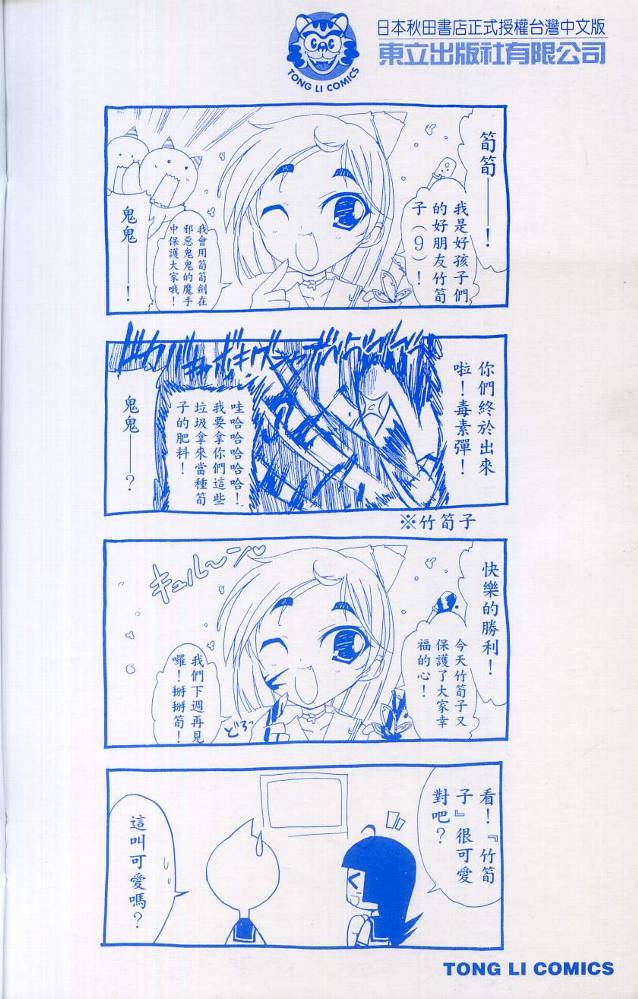 TONG LI COMICS
日本秋田書店正式授權台灣中文版
東立出版社有限公司
筍筍——！
我是好孩子們
的好朋友竹筍
子（9）！
我會用筍筍劍在
邪惡鬼鬼的魔手
中保護大家哦！
鬼鬼——！
你們終於出來
啦！毒素彈！
哇哈哈哈哈哈！
我要拿你們這些
垃圾拿來當種筍
子的肥料！
鬼鬼——？
※竹筍子
快樂的勝利！
キュルーン♡
今天竹筍子又
保護了大家幸
福的心！
我們下週再見
囉！掰掰筍！
どろっ
看！『竹筍
子』很可愛
對吧？
這叫可愛嗎？
TONG LI COMICS